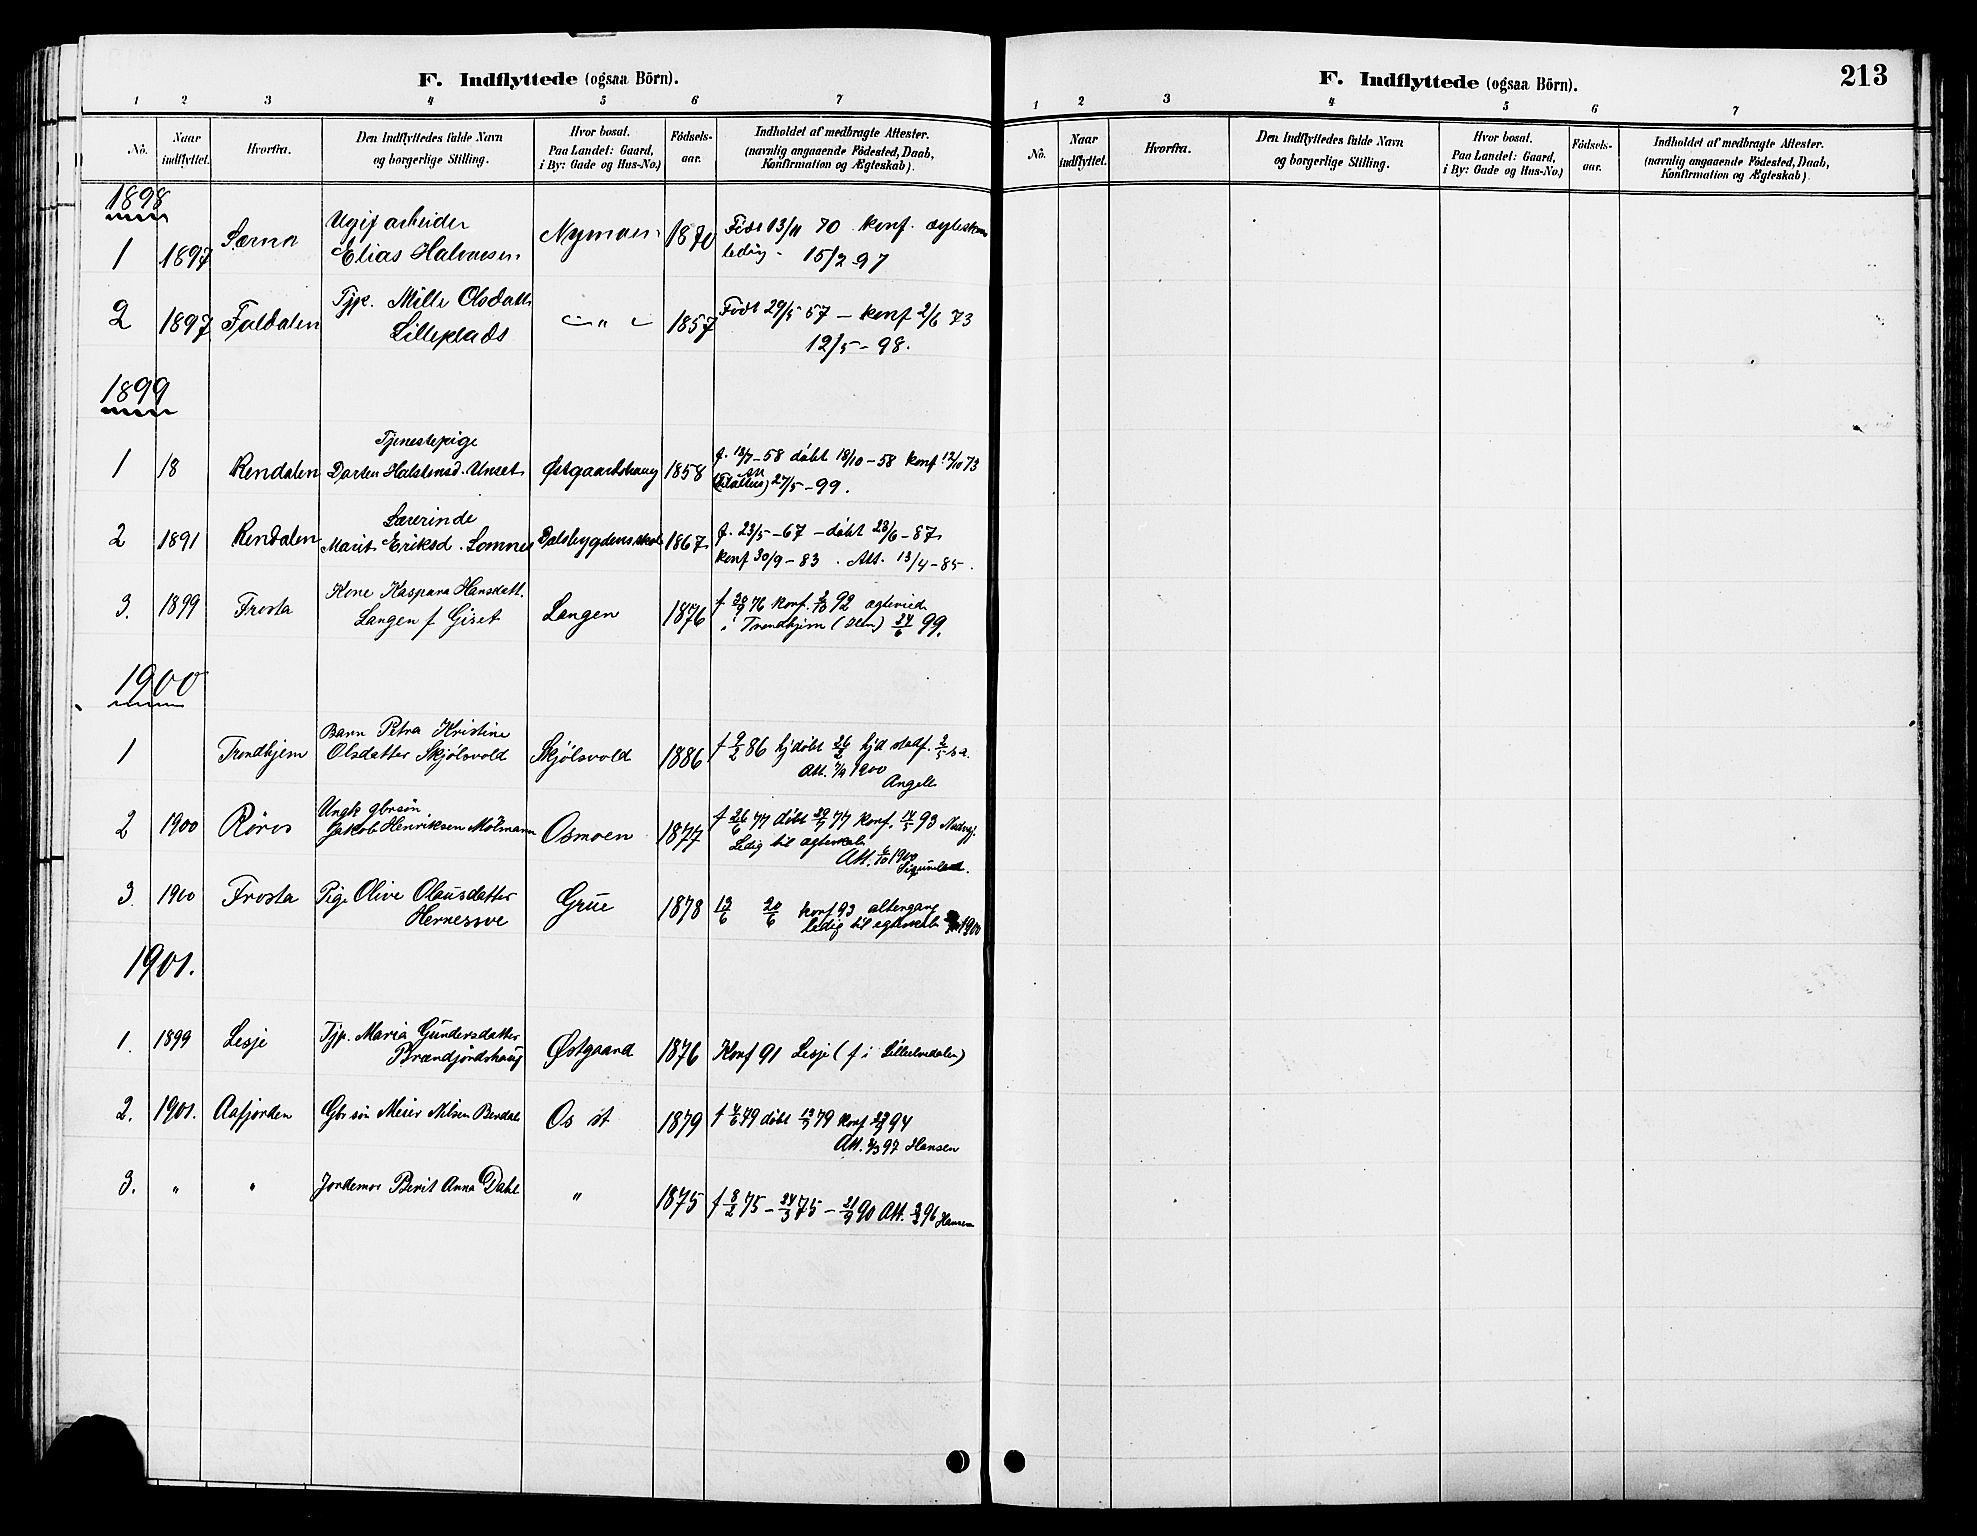 F. Indflyttede (ogsaa Börn).
1 2 3 4 5 6 7
No. Naar indflyttet. Hvorfra. Den Indflyttedes fulde Navn og borgerlige Stilling. Hvor bosat. Paa Landet: Gaard, i By: Gade og Hus-No.) Födsels-aar. Indholdet af medbragte Attester. (navnlig angaaende Födested, Daab, Konfirmation og Ægteskab).
1898
Ugift arbeider
1 1897 Særna Elias Halvorsen Nymoen 1870 Födt 13/11 70 konf.
ledig - 15/2 97
2 1897 Foldalen Tjp. Mille Olsdatt. 1857 Födt 29/5 57 – konf 2/6 73
Lilleplads 12/5 - 98.
1899
Tjenestepige
1 18 Rendalen Dorten Halstensd. Unset Østgaardshaug 1858 f. 13/7 - 58 döbt 18/10 - 58 konf 12/10 73
27/5 - 99.
Lærerinde
2 1891 Rendalen Marit Eriksd. Lomnes Dalsbygdens skole 1867 f. 23/5 - 67 – döbt 23/6 - 87
konf 30/9 - 83. Att. 13/4 - 85.
Kone Kaspara Hansdatt.
3. 1899 Frosta Langen f Giset Langen 1876 konf. 92 ægteviet
i Trondhjem 24/6 99.
1900
Barn Petra Kristine
1 Trondhjem Olsdatter Skjölsvold Skjölsvold 1886 f 9/2 86 hjdöbt 26/2 hjd stadf.
Att. 1900
Angell
Ungk gbrsön
2 1900 Röros Jakob Henriksen Mölmann Osmoen 1877 f 26/6 77 döbt 77 konf. 93
Ledig til ægteskab
Att. 1900
3. 1900 Frosta Pige Olive Olausdatter Grue 1878 13/6 20/6 konf 93 altergang
Hernessve ledig til egteskab 1900
1901.
1. 1899 Lesje Tjp. Maria Gundersdatter Østgaard 1876 Konf 91 Lesje (f i Lilleelvedalen)
Brændjordshaug
2. 1901. Aafjorden Gbr sön Meier Nilsen Berdal Os st 1879 döbt 79 konf 94
Att. 97 Hansen
3. " " Jordemor Berit Anna Dahl " 1875 f 8/2 75 – 24/3 75 – 21/9 90 Att. 96 Hansen
F. Indflyttede (ogsaa Börn). 213
1 2 3 4 5 6 7
No. Naar indflyttet. Hvorfra. Den Indflyttedes fulde Navn og borgerlige Stilling. Hvor bosat. Paa Landet: Gaard, i By: Gade og Hus-No.) Födsels-aar. Indholdet af medbragte Attester. (navnlig angaaende Födested, Daab, Konfirmation og Ægteskab).